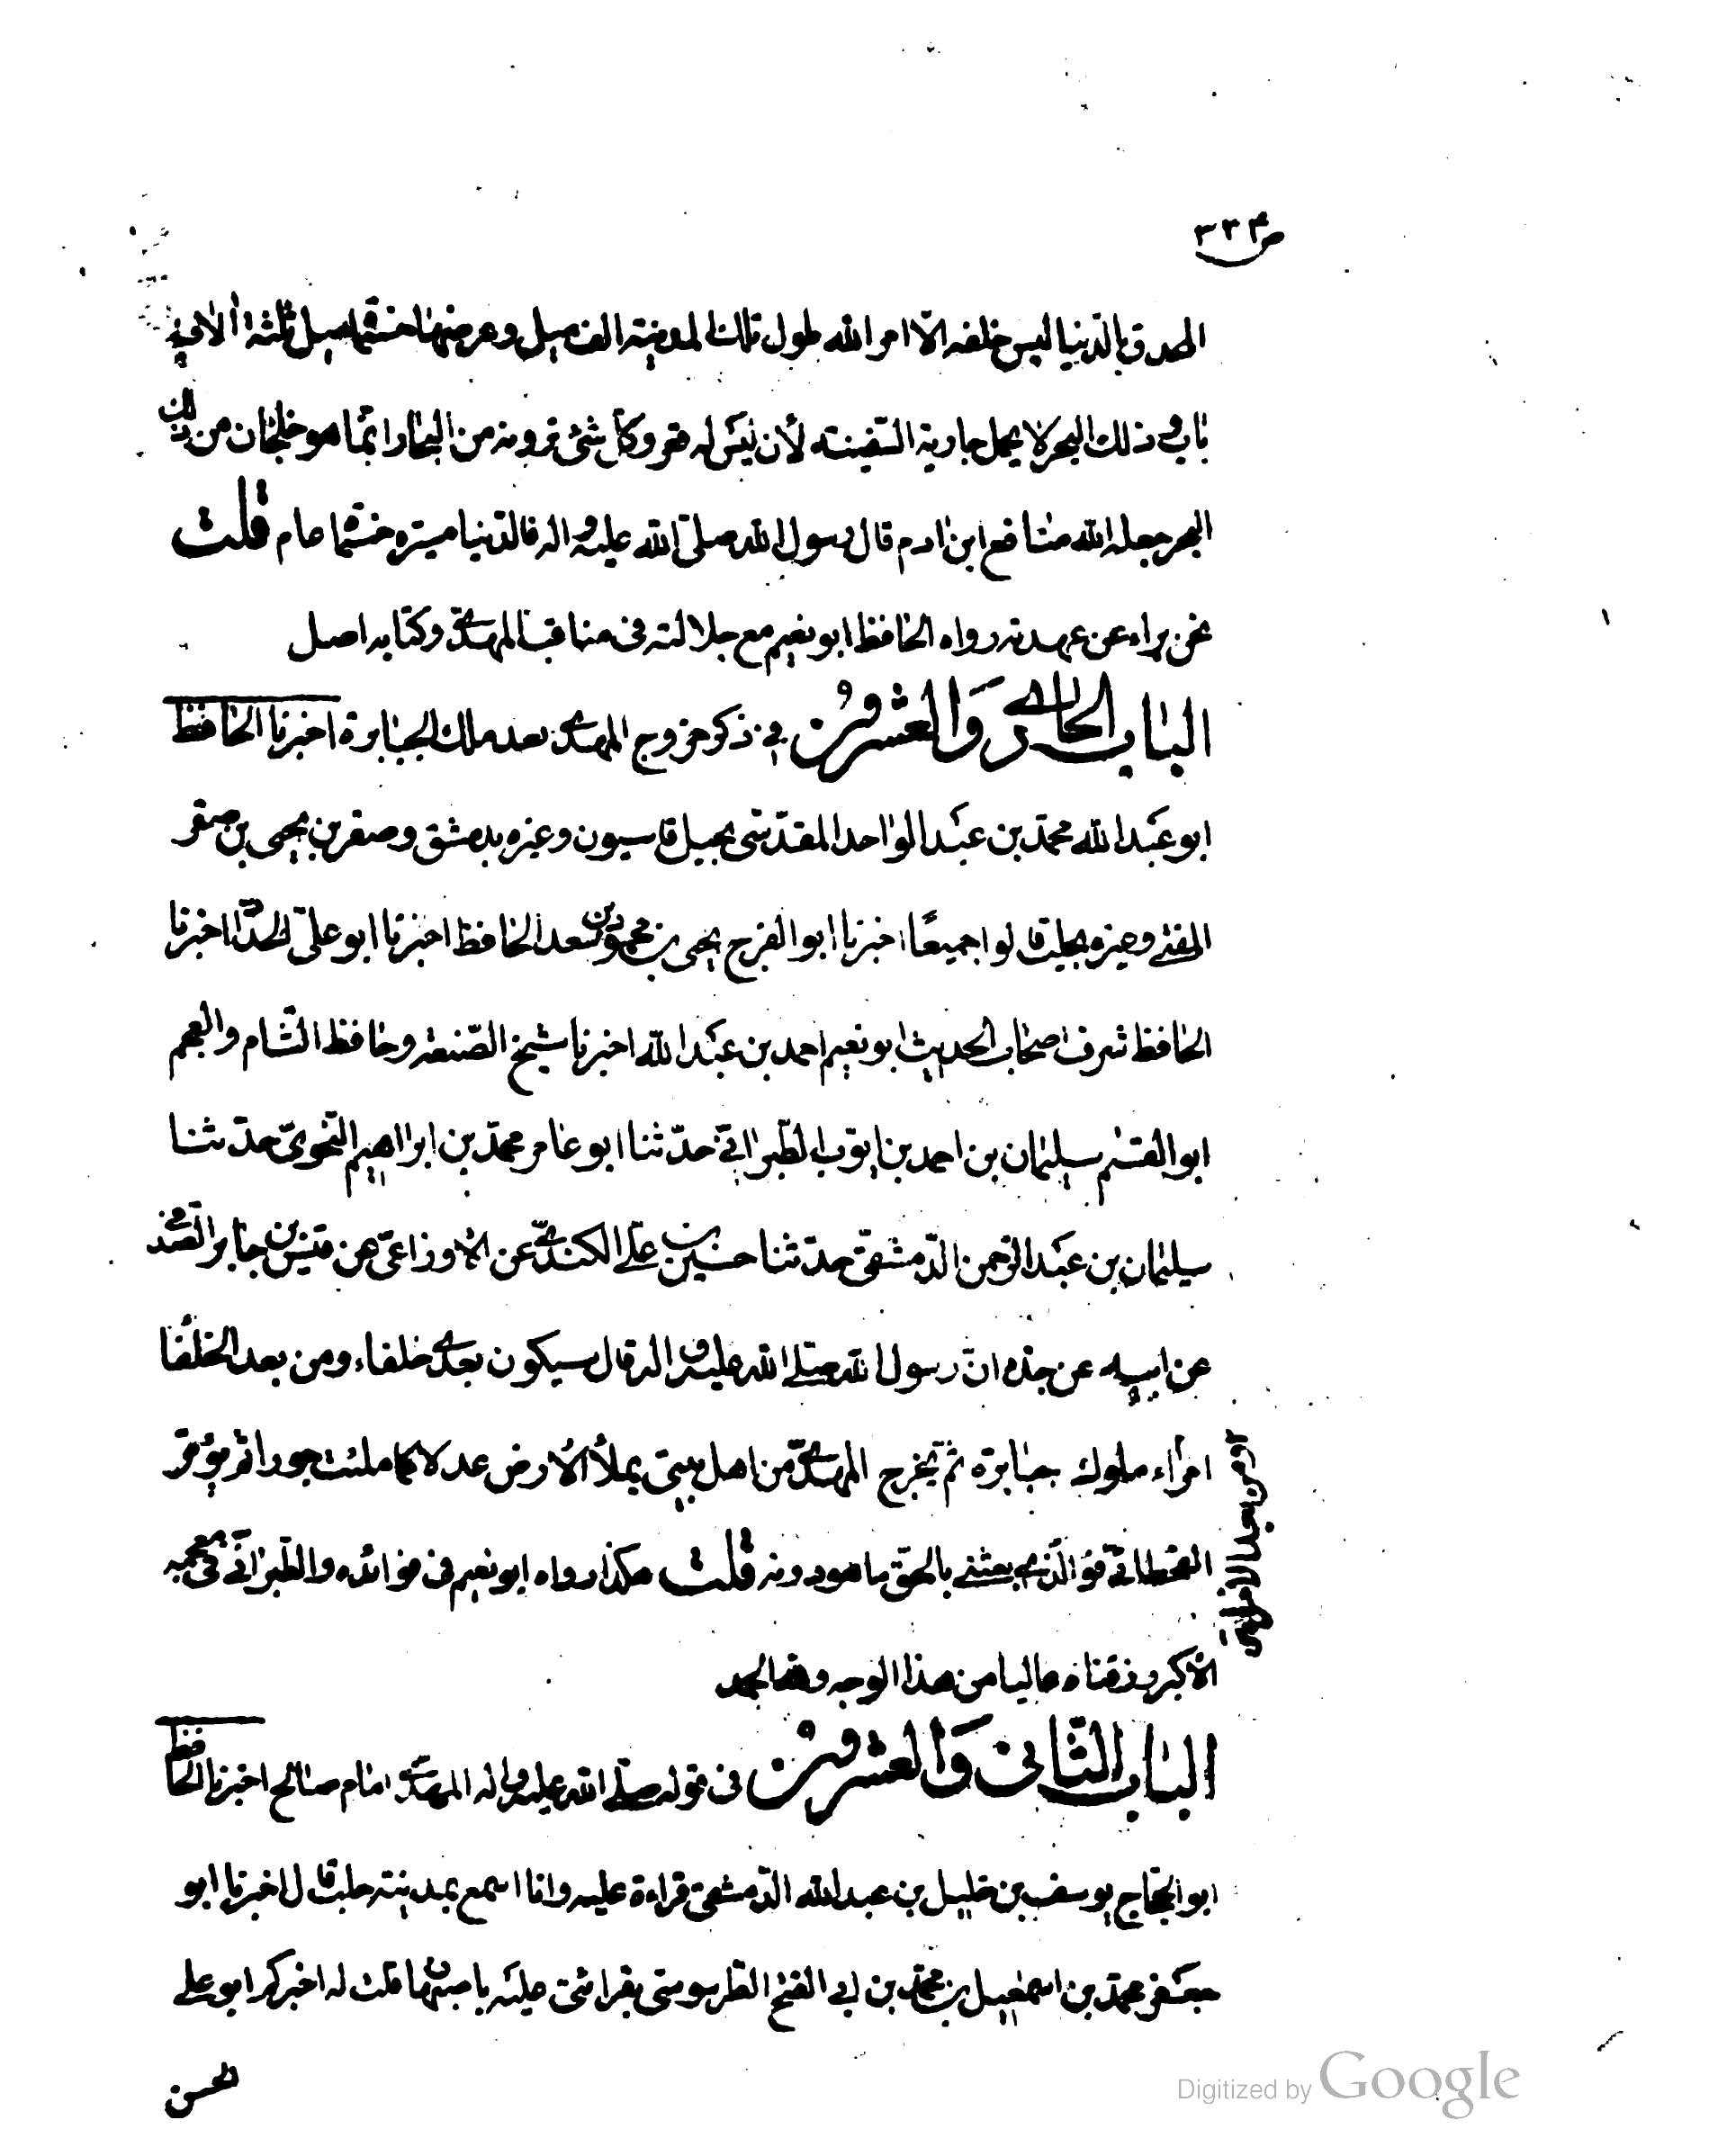 ص ٣٣٤
المحدق بالدنيا ليس خلفه الّا امر الله طول تلك المدينة الف ميل وعرضها خمسمائة ميل ثلثة الاف
باب وذلك البحر لا يحمل جارية السّفينة لأن ليس له قعر وكل شئ ترونه من البحار انما هو خلجان من ذلك
البحر جعله الله منافع ابن ادم قال رسول الله صلى الله عليه واله فالدّنيا مسيرة خمسمائة عام قلت
نحن براء عن عهدته رواه الحافظ ابو نعيم مع جلالته فى مناقب المهدى وكتابه اصل
الباب الحادي وَالعشرون في ذكر خروج المهدى بعد ملك الجبابرة اخبرنا الحافظ
ابو عبد الله محمد بن عبد الواحد المقدّسى بجبل قاسيون وغيره بدمشق وصقر بن يحيى بن صقر
المفتى وغيره بحلب قالوا جميعًا اخبرنا ابو الفرج يحيى بن محمود بن سعد الحافظ اخبرنا ابو علىّ الحدّاد اخبرنا
الحافظ شرف اصحاب الحديث ابو نعيم احمد بن عبد الله اخبرنا شيخ الصّنعة وحافظ الشّام والعجم
ابو القسم سليمان بن احمد بن ايّوب الطّبرانىّ حدّثنا ابو عامر محمّد بن ابراهيم النحوىّ حدّثنا
سليمان بن عبد الرّحمن الدّمشقىّ حدّثنا حسين بن على الكندىّ عن الاوزاعى عن قيس بن جابر الصدفى
عن ابيه عن جدّه انّ رسول الله صلى الله عليه واله قال سيكون بعدى خلفاء ومن بعد الخلفا
امراء ملوك جبابرة ثمّ يخرج المهدىّ من اهل بيتى يملأ الأرض عدلا كما ملئت جورا ثم يؤمّر
القحطانىّ فو الّذى بعثنى بالحقّ ما هو دونه قلت هكذا رواه ابو نعيم فى فوائده والطّبرانىّ فى معجمه
الأكبر رزقناه عاليا من هذا الوجه ولله الحمد
الباب الثّانى وَالعشرون فى قوله صلى الله عليه واله المهدى امام صالح اخبرنا الحافظ
ابو الحجّاج يوسف بن خليل بن عبد الله الدّمشقىّ قراءة عليه وانا اسمع بمدينة حلب قال اخبرنا ابو
جعفر محمّد بن اسمعيل بن محمّد بن ابى الفتح الطرسوسى بقرائتى عليه باصبهان قلت له اخبركم ابو على
الحسن
Digitized by Google